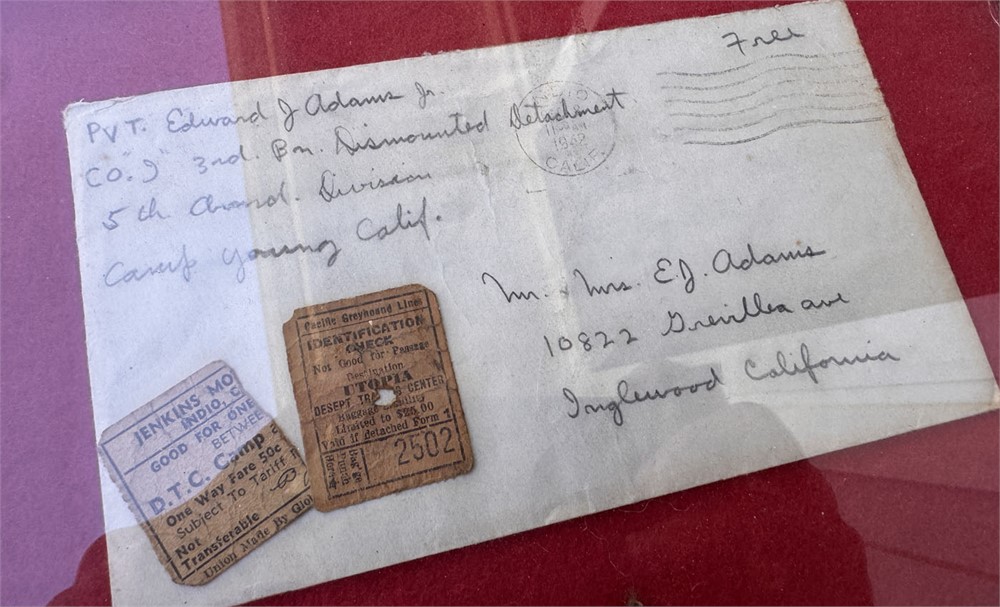 Free
PVT. Edward J Adams Jr.
CO. "I" 3rd. Bn. Dismounted Detachment
5th Armd. Division
Camp Young Calif.
1942
CALIF.
Mr. & Mrs. E.J. Adams
10822 Grevillea ave
Inglewood California
Pacific Greyhound Lines
IDENTIFICATION
CHECK
Not Good for Passage
Destination
UTOPIA
DESERT CENTER
Baggage Liability
Limited to $25.00
Valid if detached Form 1
2502
Bag'ge
Punch
Here
JENKINS MO
INDIO, C
GOOD FOR ONE
BETWEE
D.T.C. Camp a
One Way Fare 50c
Subject To Tariff
Not
Transferable
Union Made By Glo